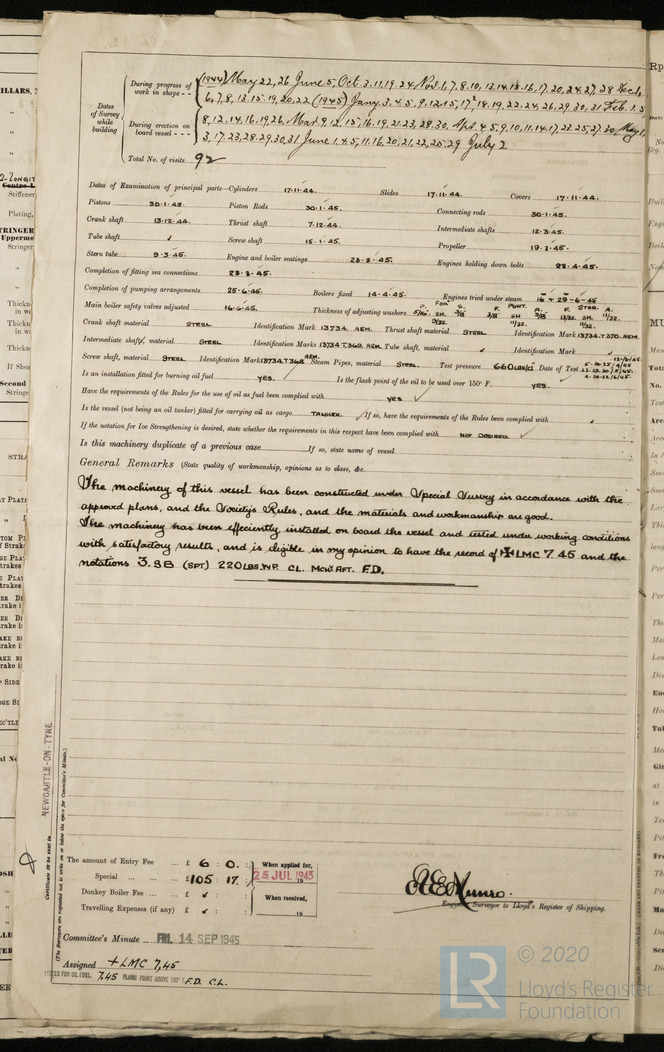 Dates of Survey while building
During progress of work in shops - - (1944) May 22, 26 June 5, Oct. 3. 11. 19. 24 Nov. 1, 7, 8, 10, 13. 14. 15. 16, 17, 20, 24, 27, 28 Dec. 1,
6, 7, 8, 13. 15. 19, 20, 22 (1945) Jany. 3. 4. 5. 9. 12. 15, 17, 18. 19, 22, 24, 26, 29, 30, 31 Feb. 1. 5
During erection on board vessel - - - 8, 12. 14, 16, 19, 26, Mar. 9. 12. 15, 16. 19, 21. 23, 28. 30, Apl. 4. 5. 9, 10, 11. 14. 17, 23. 25, 27, 30, May 1,
3, 17, 23, 28, 29, 30, 31 June 1. 4. 5, 11. 16, 20, 21, 22, 25, 29 July 2
Total No. of visits 92
Dates of Examination of principal parts—Cylinders 17.11.44. Slides 17.11.44. Covers 17.11.44.
Pistons 30.1.45. Piston Rods 30.1.45. Connecting rods 30.1.45.
Crank shaft 13.12.44. Thrust shaft 7.12.44. Intermediate shafts 12.3.45.
Tube shaft Screw shaft 15.1.45. Propeller 19.3.45.
Stern tube 9.3.45. Engine and boiler seatings 23.3.45. Engines holding down bolts 23.4.45.
Completion of fitting sea connections 23.3.45.
Completion of pumping arrangements 25.6.45. Boilers fixed 14.4.45. Engines tried under steam 16 & 29.6.45
Main boiler safety valves adjusted 16.6.45. Thickness of adjusting washers
Crank shaft material STEEL Identification Mark 13734. AEM. Thrust shaft material STEEL Identification Mark 13734.T370. AEM.
Intermediate shafts, material STEEL Identification Marks 13734.T369. AEM. Tube shaft, material Identification Mark
Screw shaft, material STEEL Identification Mark 13734.T368 AEM. Steam Pipes, material STEEL Test pressure 660 LBS/□" Date of Test
Is an installation fitted for burning oil fuel YES. Is the flash point of the oil to be used over 150° F. YES.
Have the requirements of the Rules for the use of oil as fuel been complied with YES
Is the vessel (not being an oil tanker) fitted for carrying oil as cargo TANKER. If so, have the requirements of the Rules been complied with
If the notation for Ice Strengthening is desired, state whether the requirements in this respect have been complied with NOT DESIRED.
Is this machinery duplicate of a previous case If so, state name of vessel
General Remarks (State quality of workmanship, opinions as to class, &c.
The machinery of this vessel has been constructed under Special Survey in accordance with the
approved plans, and the Society's Rules, and the materials and workmanship are good.
The machinery has been effeciently installed on board the vessel and tested under working conditions
with satisfactory results, and is eligible in my opinion to have the record of ✠LMC 7.45 and the
notations 3.SB (SPT) 220 LBS.WP. CL. MCHY AFT. F.D.
NEWCASTLE-ON-TYNE
Certificate to be sent to
(The Surveyors are requested not to write on or below the space for Committee's Minute.)
The amount of Entry Fee ... £ 6 : 0. :
Special ... ... £105 : 17. :
Donkey Boiler Fee ... ... £
Travelling Expenses (if any) £
When applied for,
25 JUL 1945
When received,
19
A.E. Munro.
Engineer Surveyor to Lloyd's Register of Shipping.
Committee's Minute FRI. 14 SEP 1945
Assigned +LMC 7,45
FITTED FOR OIL FUEL. 7,45 FLASH POINT ABOVE 150° F. F.D. C.L.
© 2020
LR
Lloyd's Register
Foundation